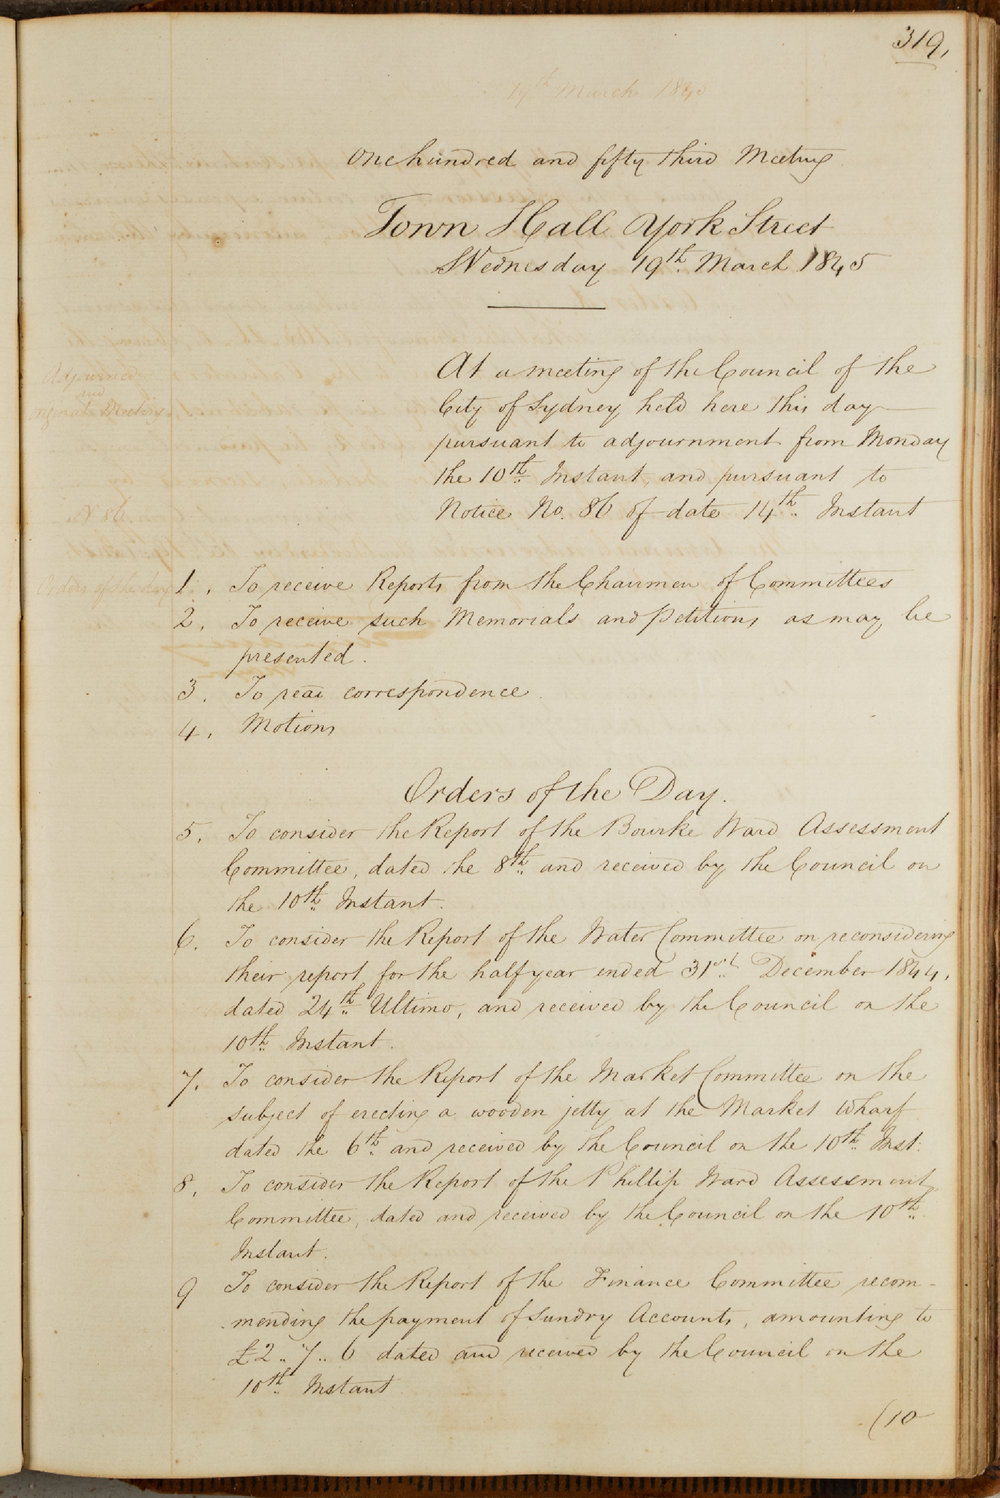 319,
19th March 1845
One hundred and fifty third Meeting
Town Hall York Street
Wednesday 19th March 1845
At a meeting of the Council of the
City of Sydney held here this day
pursuant to adjournment from Monday
the 10th Instant and pursuant to
Notice No. 86 of date 14th Instant
Adjourned
and
Meeting
N 86
1. To receive Reports from the Chairmen of Committees
2. To receive such Memorials and Petitions as may be
presented.
3. To read correspondence.
4. Motions
Orders of the Day.
5. To consider the Report of the Bourke Ward Assessment
Committee, dated the 8th and received by the Council on
the 10th Instant.
6. To consider the Report of the Water Committee on reconsidering
their report for the half year ended 31st December 1844,
dated 24th Ultimo, and received by the Council on the
10th Instant.
7. To consider the Report of the Market Committee on the
subject of erecting a wooden jetty at the Market Wharf
dated the 6th and received by the Council on the 10th Inst.
8. To consider the Report of the Phillip Ward Assessment
Committee, dated and received by the Council on the 10th
Instant.
9 To consider the Report of the Finance Committee recom-
mending the payment of Sundry Accounts, amounting to
£2..7..6 dated and received by the Council on the
10th Instant
(10